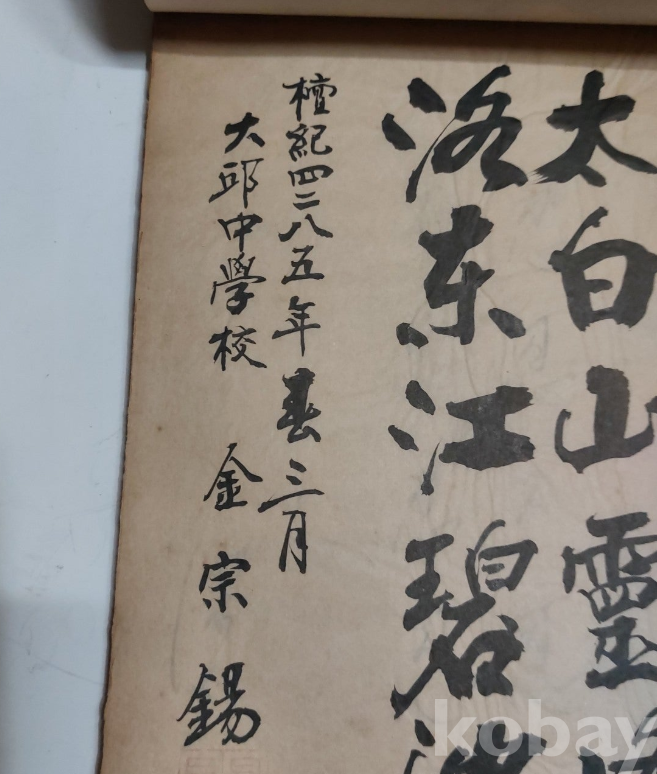 太白山靈
洛东江碧
檀紀四二八五年春三月
大邱中學校 金宗錫
kobay